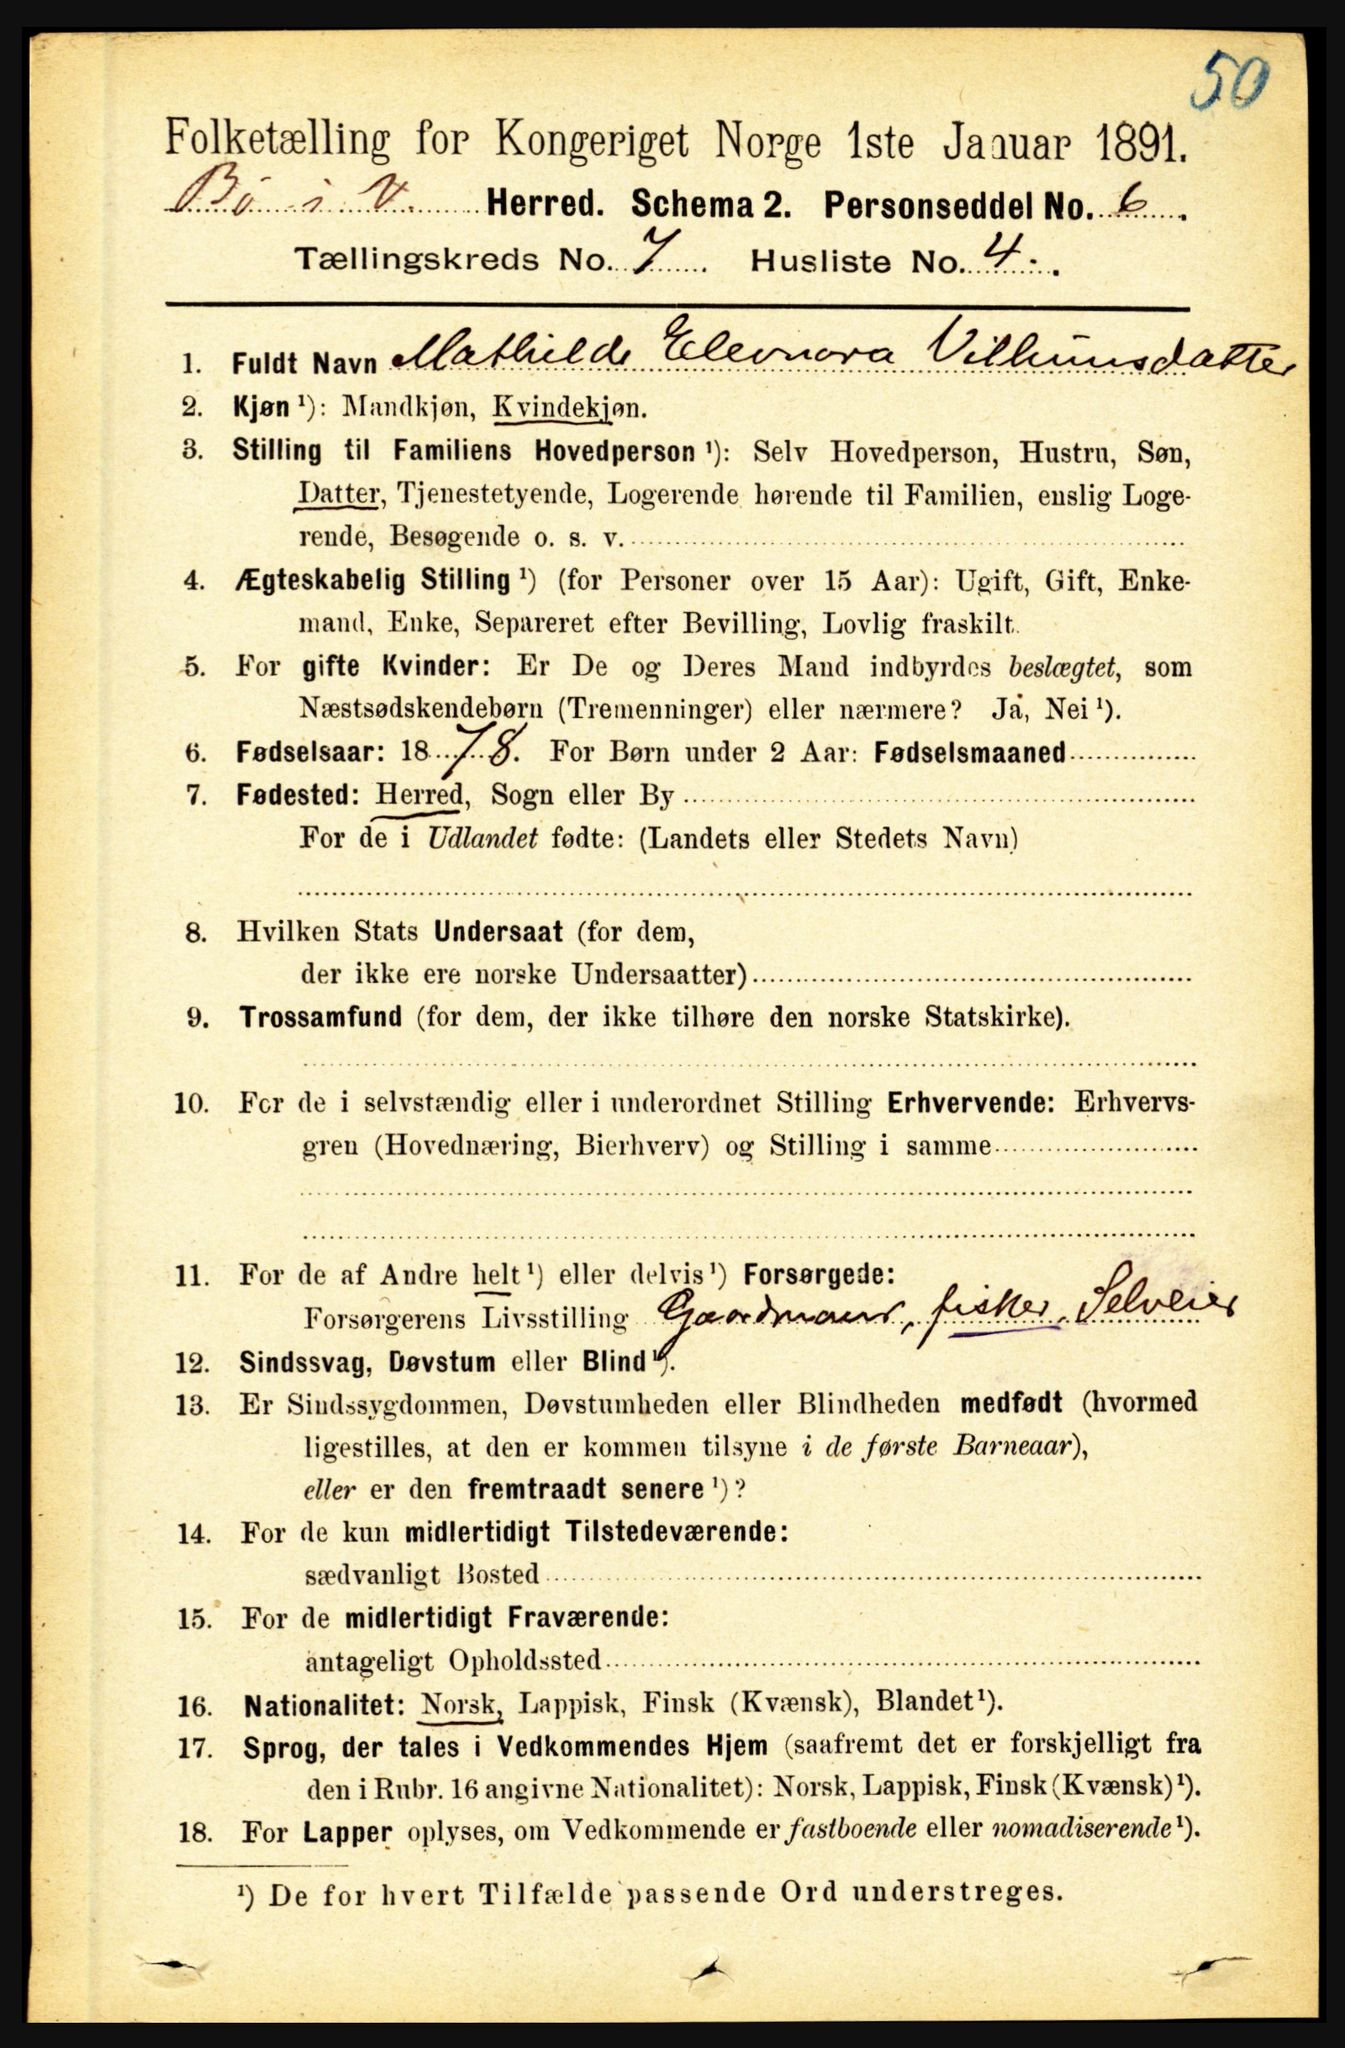 50
Folketælling for Kongeriget Norge 1ste Januar 1891.
Bø i V. Herred. Schema 2. Personseddel No. 6.
Tællingskreds No. 7 Husliste No. 4.
1. Fuldt Navn Mathilde Eleonora Vilhumsdatter
2. Kjøn ¹): Mandkjøn, Kvindekjøn.
3. Stilling til Familiens Hovedperson ¹): Selv Hovedperson, Hustru, Søn,
Datter, Tjenestetyende, Logerende hørende til Familien, enslig Loge-
rende, Besøgende o. s. v.
4. Ægteskabelig Stilling ¹) (for Personer over 15 Aar): Ugift, Gift, Enke-
mand, Enke, Separeret efter Bevilling, Lovlig fraskilt.
5. For gifte Kvinder: Er De og Deres Mand indbyrdes beslægtet, som
Næstsødskendebørn (Tremenninger) eller nærmere? Ja, Nei ¹).
6. Fødselsaar: 1878. For Børn under 2 Aar: Fødselsmaaned
7. Fødested: Herred, Sogn eller By
For de i Udlandet fødte: (Landets eller Stedets Navn)
8. Hvilken Stats Undersaat (for dem,
der ikke ere norske Undersaatter)
9. Trossamfund (for dem, der ikke tilhøre den norske Statskirke).
10. For de i selvstændig eller i underordnet Stilling Erhvervende: Erhvervs-
gren (Hovednæring, Bierhverv) og Stilling i samme
11. For de af Andre helt ¹) eller delvis ¹) Forsørgede:
Forsørgerens Livsstilling Gaardmand, fisker, Selveier
12. Sindssvag, Døvstum eller Blind ¹).
13. Er Sindssygdommen, Døvstumheden eller Blindheden medfødt (hvormed
ligestilles, at den er kommen tilsyne i de første Barneaar),
eller er den fremtraadt senere ¹)?
14. For de kun midlertidigt Tilstedeværende:
sædvanligt Bosted
15. For de midlertidigt Fraværende:
antageligt Opholdssted
16. Nationalitet: Norsk, Lappisk, Finsk (Kvænsk), Blandet ¹).
17. Sprog, der tales i Vedkommendes Hjem (saafremt det er forskjelligt fra
den i Rubr. 16 angivne Nationalitet): Norsk, Lappisk, Finsk (Kvænsk) ¹).
18. For Lapper oplyses, om Vedkommende er fastboende eller nomadiserende ¹).
¹) De for hvert Tilfælde passende Ord understreges.